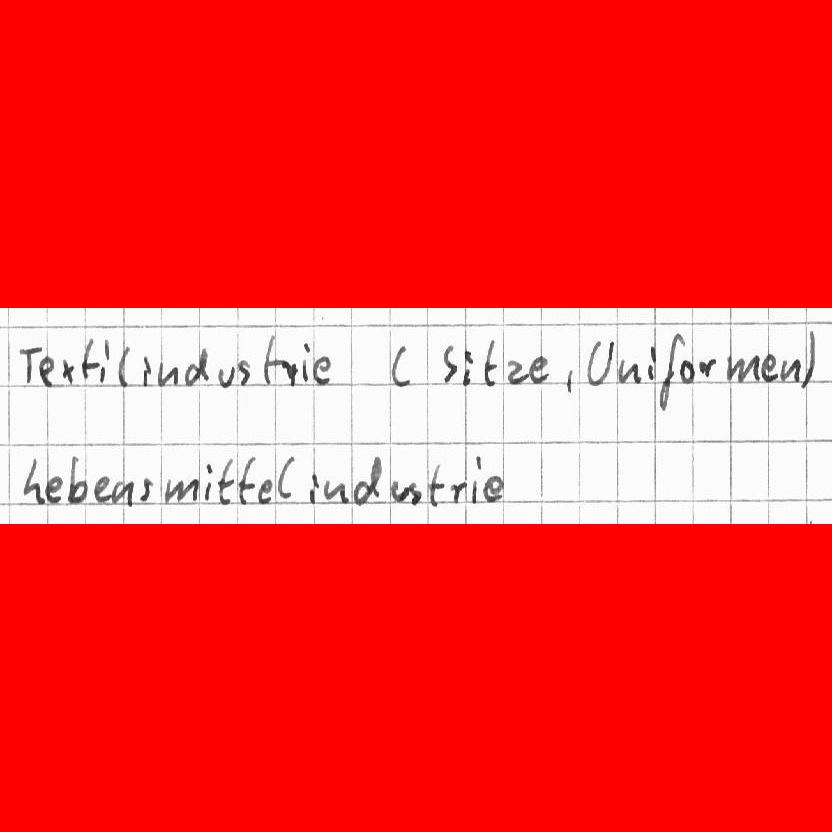 Textilindustrie ( Sitze, Uniformen)
Lebensmittelindustrie